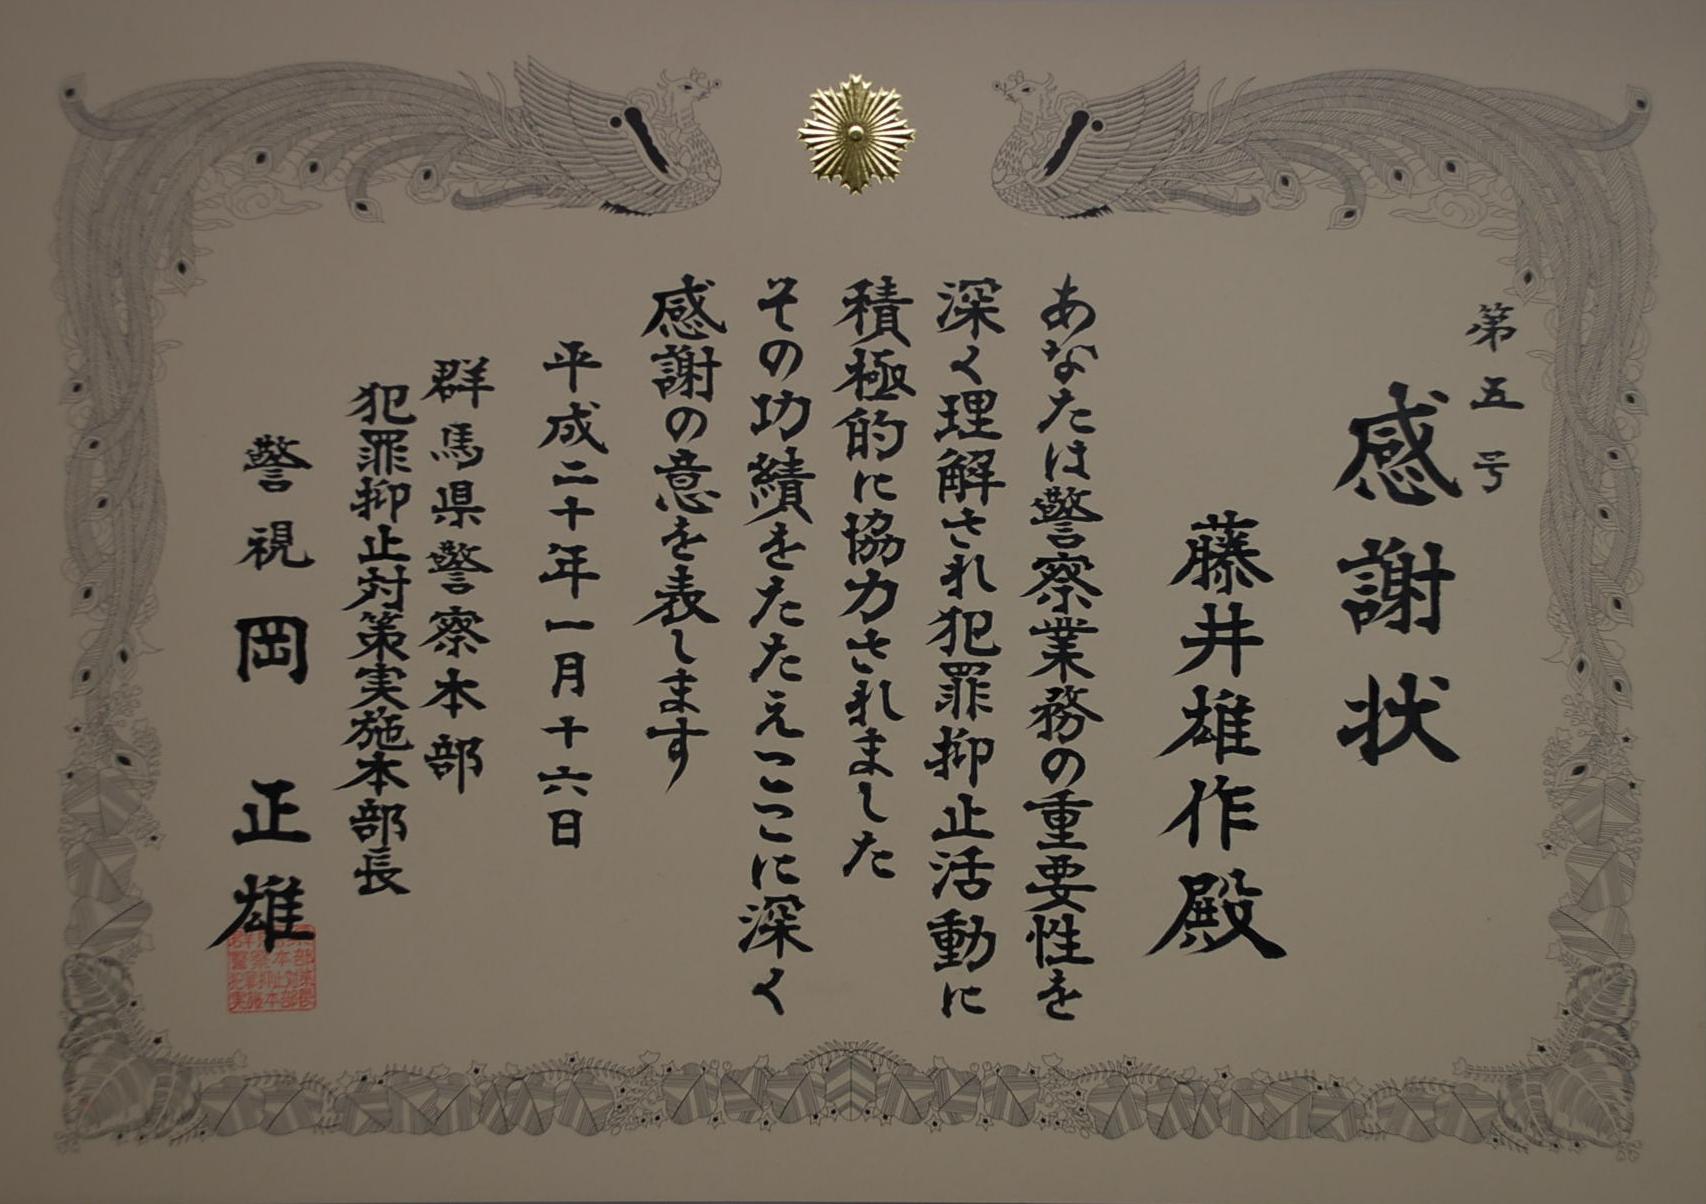 第五号
感謝状
藤井雄作殿
あなたは警察業務の重要性を
深く理解され犯罪抑止活動に
積極的に協力されました
その功績をたたえここに深く
感謝の意を表します
平成二十年一月十六日
群馬県警察本部
犯罪抑止対策実施本部長
警視岡正雄